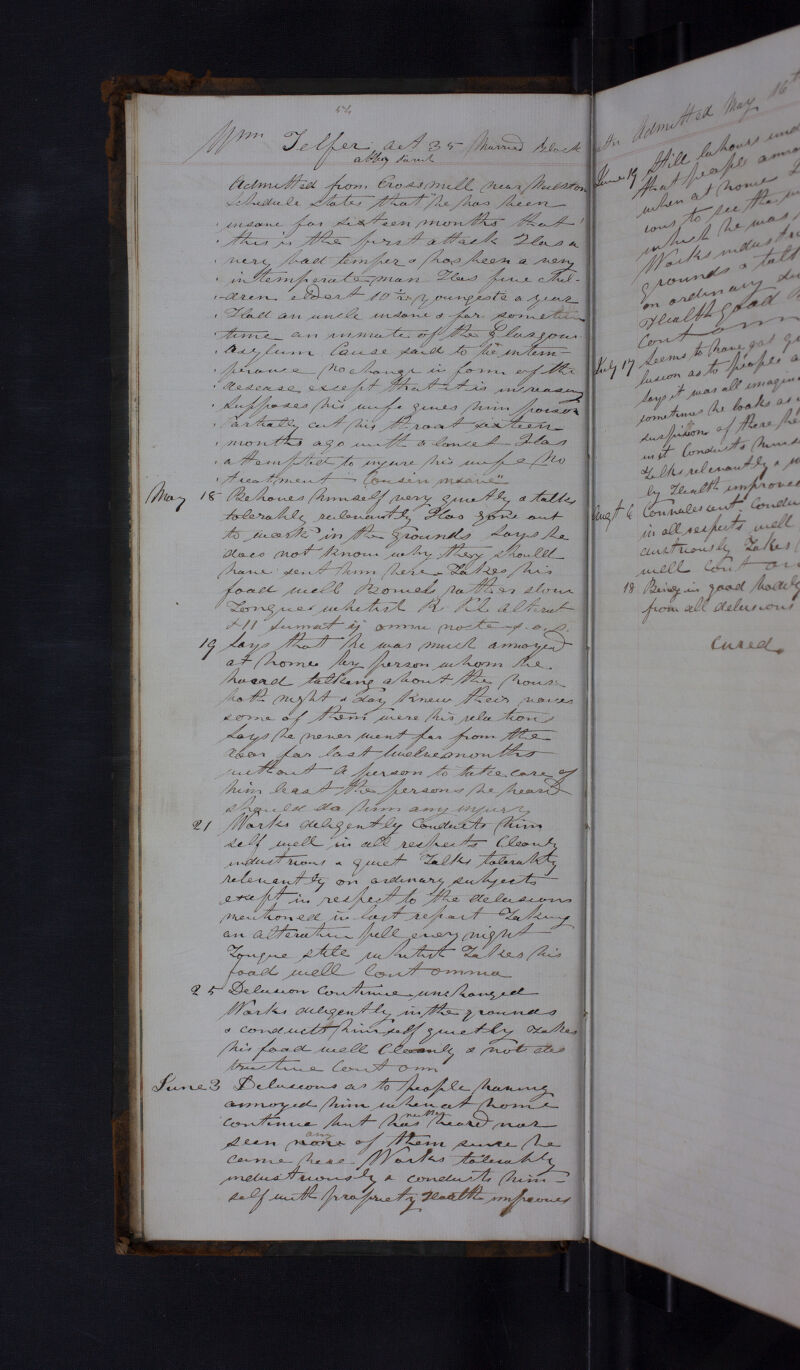 54
Wm Telfer aet 35 Married Black
abbey parish
Admitted from Crossmill near Neilston
Schedule states that he has been
insane for sixteen months that
this is the first attack Has a
very bad temper & has been a very
intemperate man Has five chil-
dren eldest 10½ youngest a year
Had an uncle insane & for some
time an inmate of the Glasgow
Asylum Cause said to be intem-
perance No change in form of the
disease except that it is increasing
Supposes his wife gives him poison
Partially cut his throat sixteen
months ago with a lancet Has
attempted to injure his wife No
treatment Cousin insane"
May 18 Behaves himself very quietly & talks
tolerably relevantly Has gone out
to work in the grounds Says he
does not know why they should
have sent him here Takes his
food well Bowels rather slow
Tongue whitish R Pil alterat
sumat ij omni nocte
19 Says that he was much annoyed
at home by person whom he
heard talking about the house
both night & day Knew their voices
some of them were his relations
Says he never went far from the
door for last twelvemonths
without a person to take care of
him least the persons he heard
should do him any injury
21 Works diligently Conducts him
self well in all respects Cleanly
industrious & quiet Talks tolerably
relevantly on ordinary subjects
except in respect to the delusions
mentioned in last report Taking
an alterative pill every night
Tongue still whitish Takes his
food well Cont omnia
25 Delusion continue unchanged
Works diligently in the grounds
& conducts himself quietly Takes
his food well Cleanly & not des
tructive Cont omn
June 3 Delusions as to people having
annoyed him when at home
continue but has neither heard nor
seen any of them since he
came here Works tolerably
industriously & conducts him-
self with propriety Health improves
Admitted May 16th
June 19 Still labours und
that people anno
when at home
ious to see the
which he was
Works industri
grounds & talk
on ordinary su
Health good
Cont omn
July 17 Seems to have got
lusion as to people a
Says it was all imagin
sometimes he looks as
suspicion of there
ist Conducts himse
Talks relevantly &
ly Health improved
Augt 6 Convalescent Condu
in all respects well
dustriously Takes
well Cont om
18 Being in good bodily
from all delusions
Cured